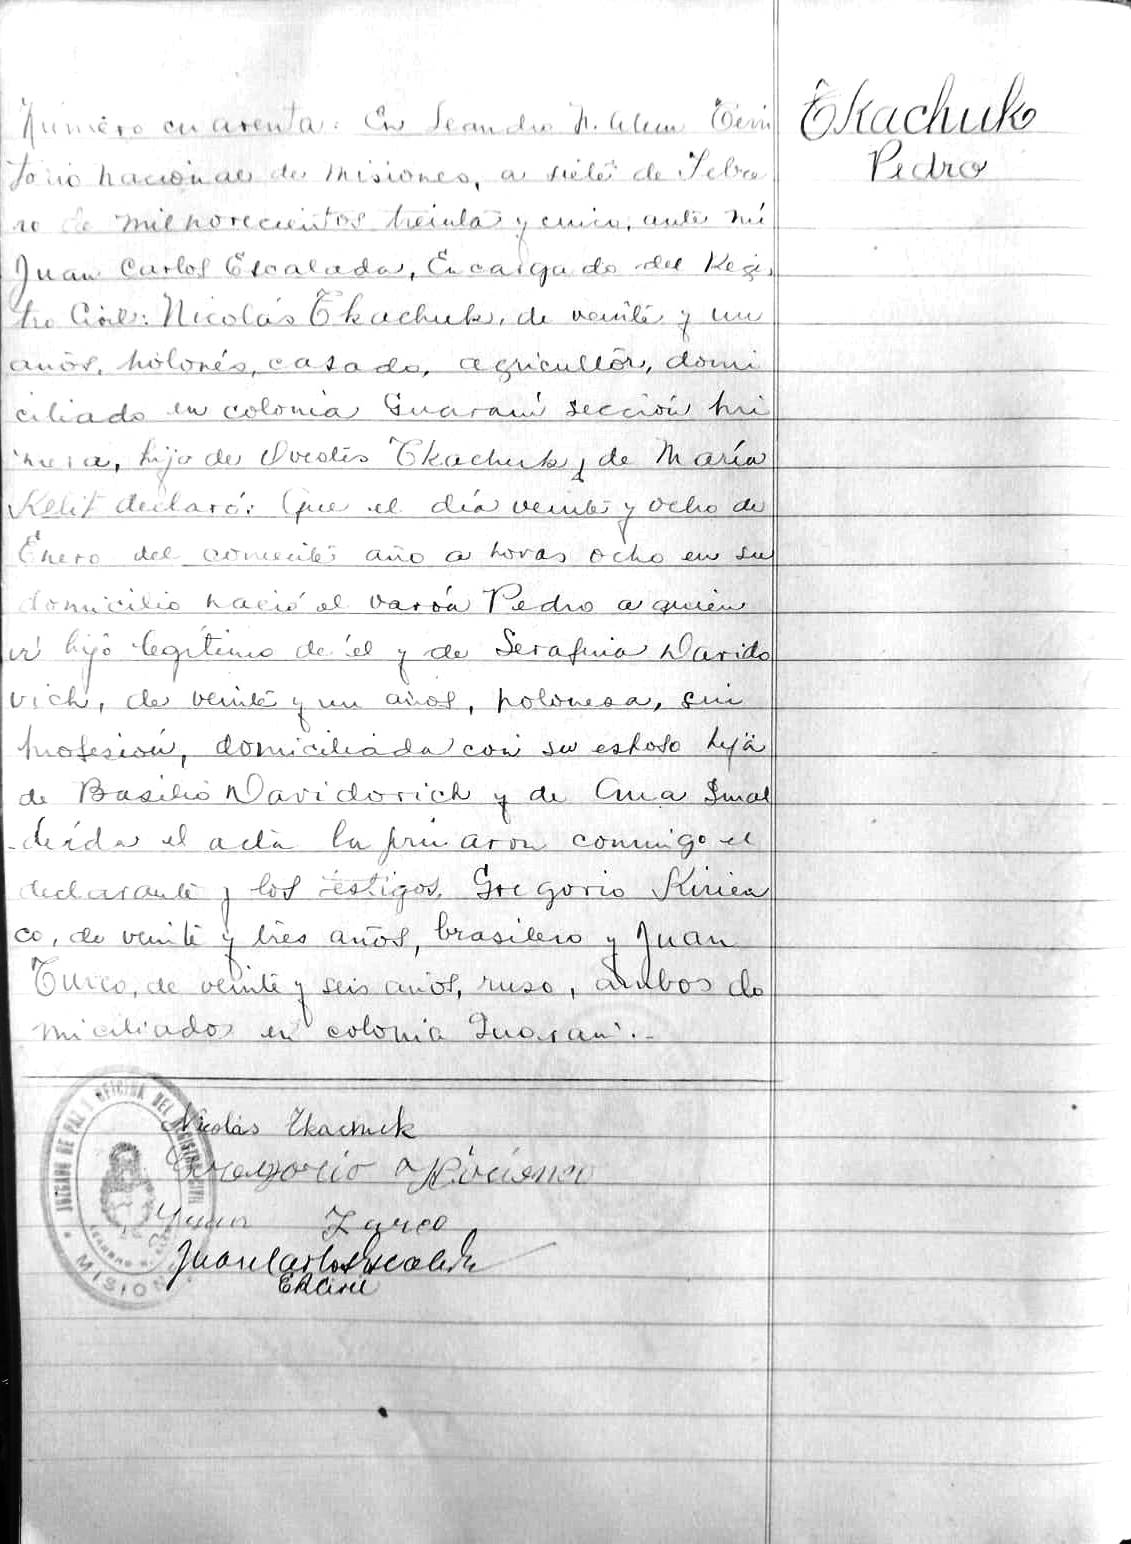 Tkachuk
Pedro
Número cuarenta: En Leandro N. Alem Terri
torio nacional de Misiones, a siete de Febre
ro de mil novecientos treinta y cinco, ante mí
Juan Carlos Escalada, Encargado del Regis
tro Civil: Nicolás Tkachuk, de veinte y un
años, polonés, casado, agricultor, domi
ciliado en colonia Guaraní sección pri
mera, hijo de Tkachuk y de María
declaró: Que el día veinte y ocho de
Enero del corriente año a horas ocho en su
domicilio nació el varón Pedro a quien
ví hijo legítimo de él y de Serafina Davido
vich, de veinte y un años, polonesa, sin
profesión, domiciliada con su esposo hija
de Basilio Davidovich y de Ana
Leída el acta la firmaron conmigo el
declarante y los testigos, Gregorio Kirien
co, de veinte y tres años, brasilero y Juan
Turco, de veinte y seis años, ruso, ambos do
miciliados en colonia Guaraní.-
Nicolás Tkachuk
Gregorio
Juan
Juan Carlos Escalada
JUZGADO DE PAZ Y OFICINA DEL REGISTRO CIVIL
MISIONES